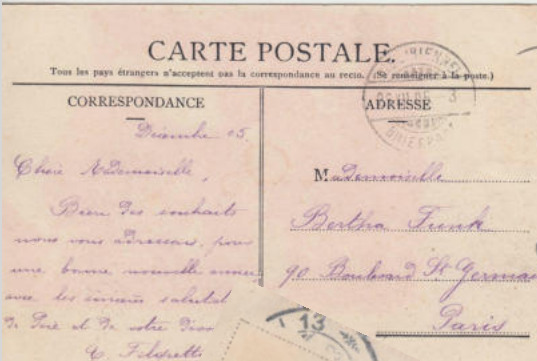 CARTE POSTALE.
Tous les pays étrangers n'acceptent pas la correspondance au recto. (Se renseigner à la poste.)
CORRESPONDANCE
Décembre 05.
Chère Mademoiselle,
Bien des souhaits
nous vous adressons, pour
une bonne nouvelle année
avec les
de et de votre
ADRESSE
Mademoiselle
Bertha Funk
90 Boulevard St Germai
Paris
BRIEFPA
3
13